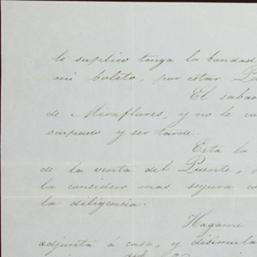 le suplico tenga la bondad
mi boleto, por estar
El saba
de Miraflores, y no le
ocupado y ser tarde.
Esta la
de la venta del Puente,
la considero mas segura
la diligencia.
Hagame
adjunta á casa, y disimula